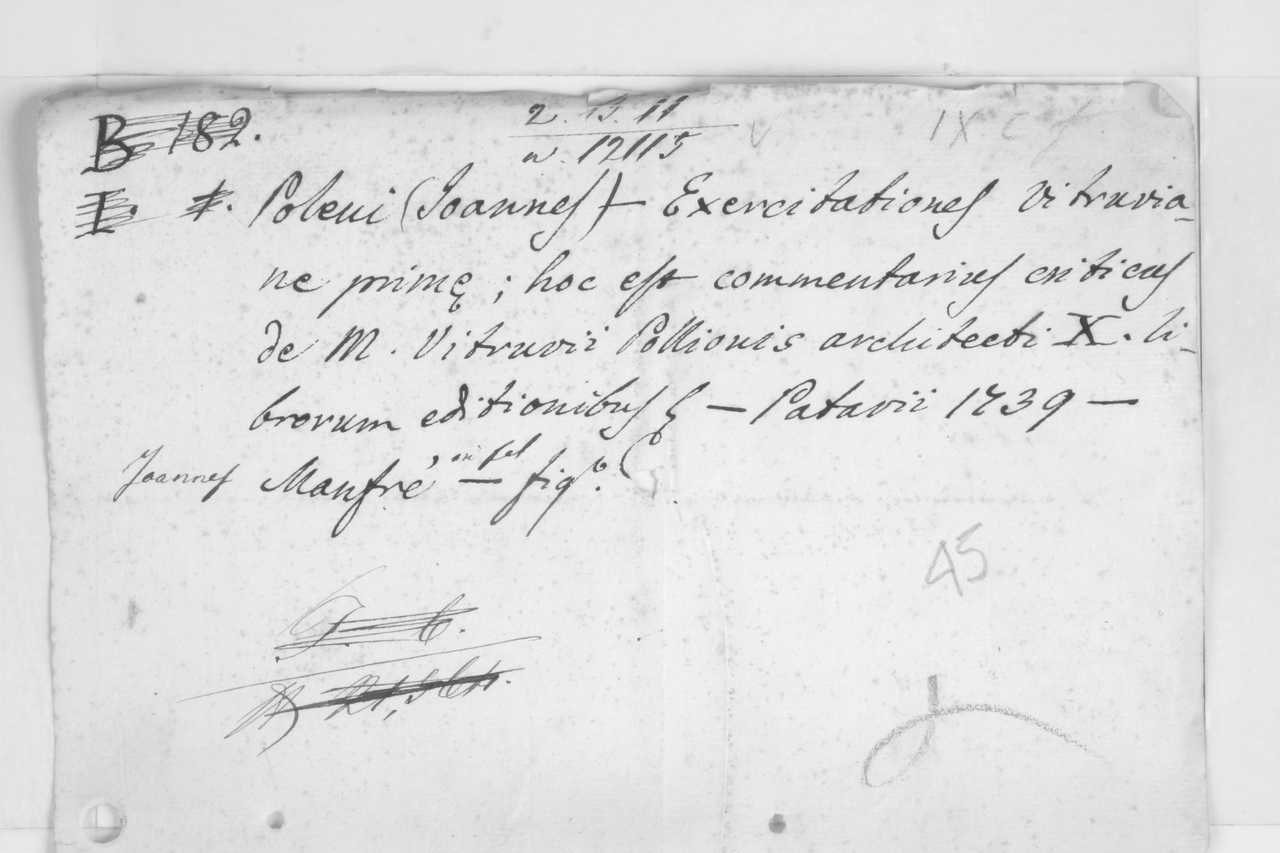 B 182.
2. 13. 11
n. 12115
IX c f
I. #. Poleni (Joannes) — Exercitationes Vitruvia-
ne primę; hoc est commentarius criticus
de M. Vitruvii Pollionis architecti X. li-
brorum editionibus — Patavii 1739 —
Joannes Manfrè — in fol figº.
45